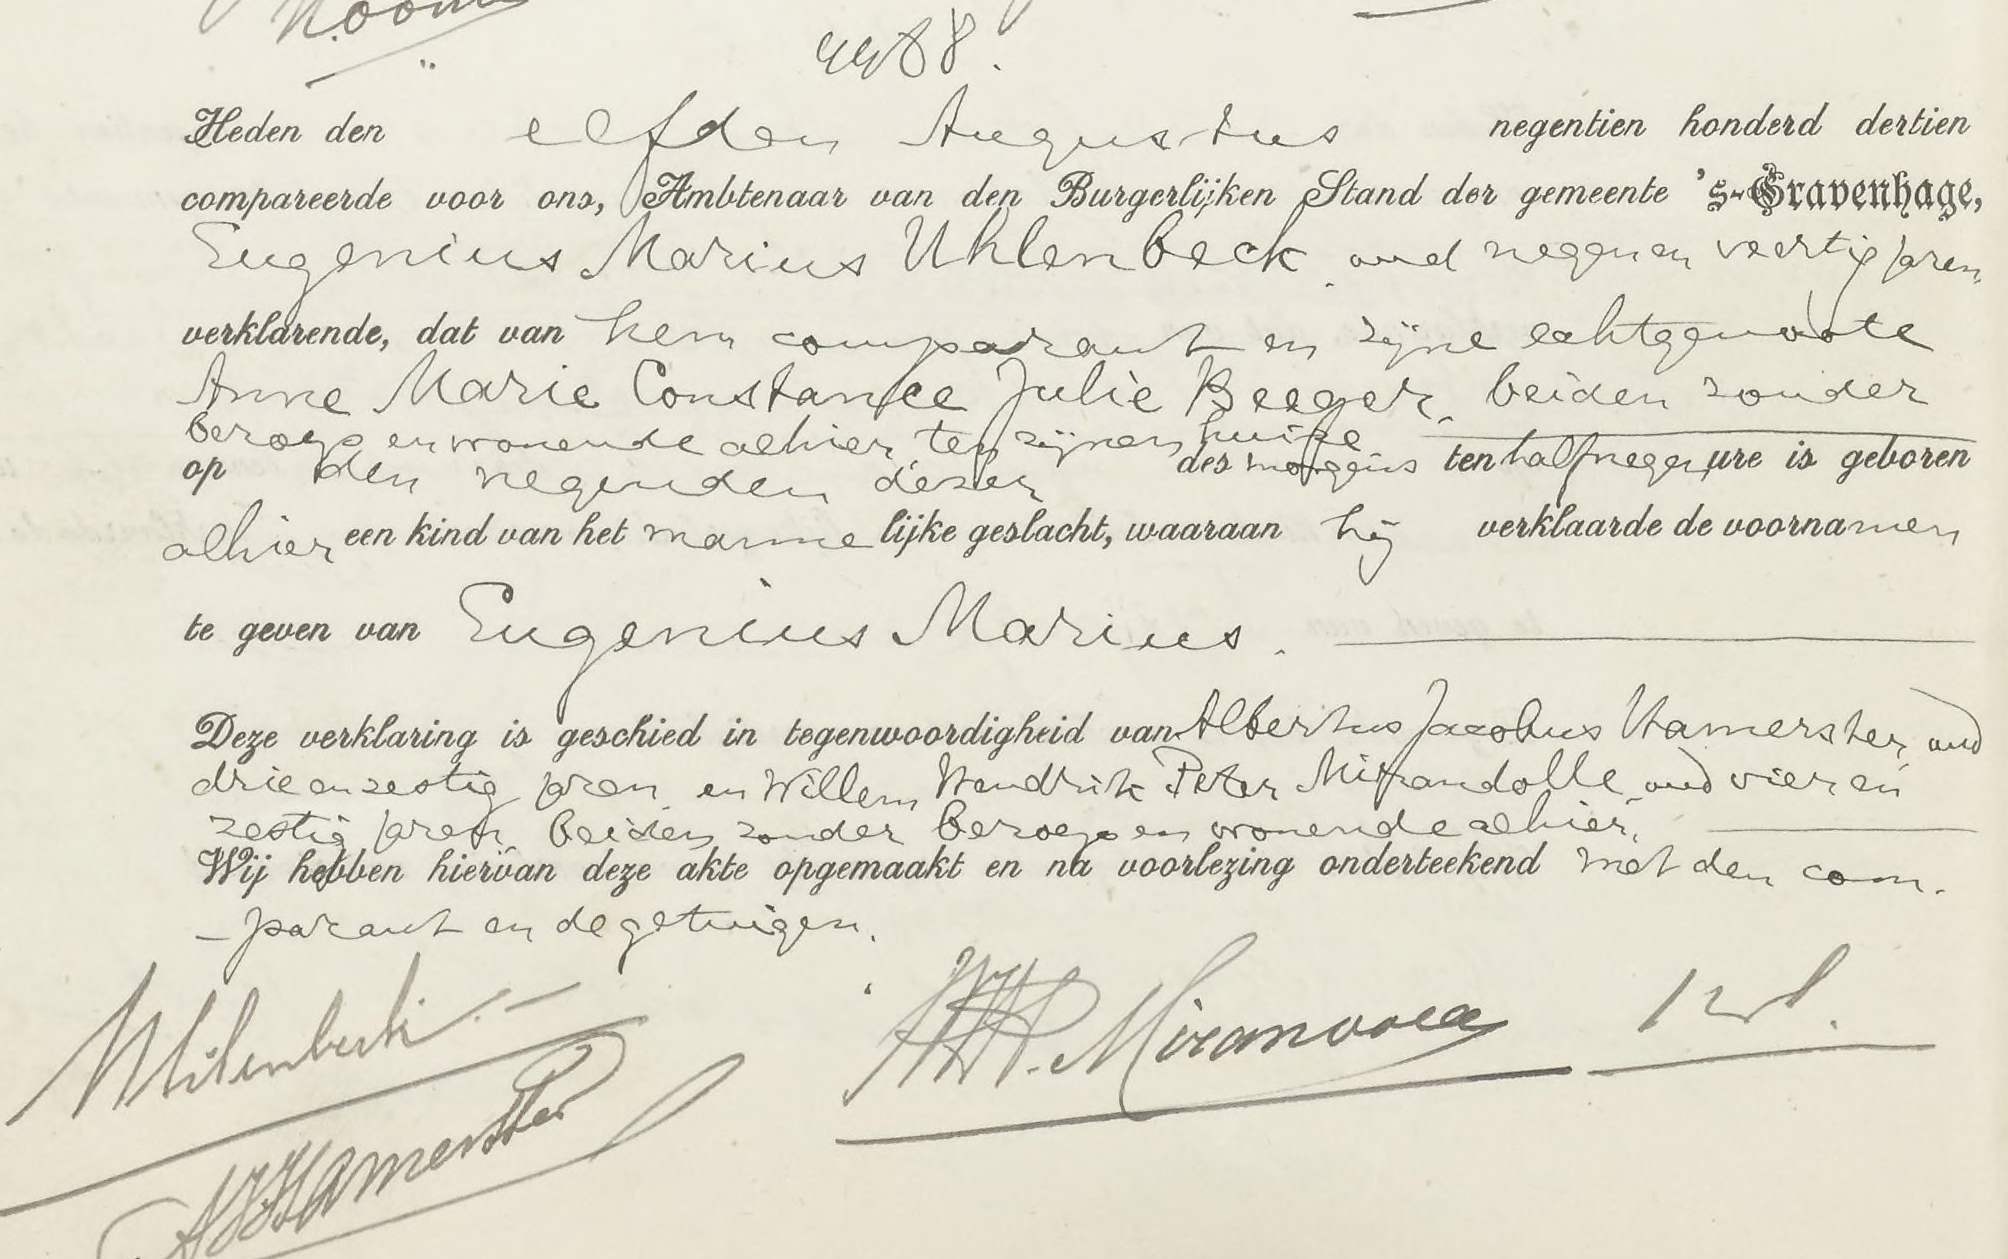 4488.
Heden den elfden Augustus negentien honderd dertien
compareerde voor ons, Ambtenaar van den Burgerlijken Stand der gemeente 's-Gravenhage,
Eugenius Marius Uhlenbeck, oud negenen veertig jaren,
verklarende, dat van hem comparant en zijne echtgenoote
Anne Marie Constance Julie Beeger, beiden zonder
beroep en wonende alhier, ten zijnen huize
op den negenden dezer des morgens ten half negen ure is geboren
alhier een kind van het mannelijke geslacht, waaraan hij verklaarde de voornamen
te geven van Eugenius Marius.
Deze verklaring is geschied in tegenwoordigheid van Albertus Jacobus Hamerster, oud
drie en zestig jaren, en Willem Hendrik Peter Mirandolle, oud vier en
zestig jaren, beiden zonder beroep en wonende alhier.
Wij hebben hiervan deze akte opgemaakt en na voorlezing onderteekend met den com-
-parant en de getuigen.
Uhlenbeck WHP. Mirandolle
AJHamerster